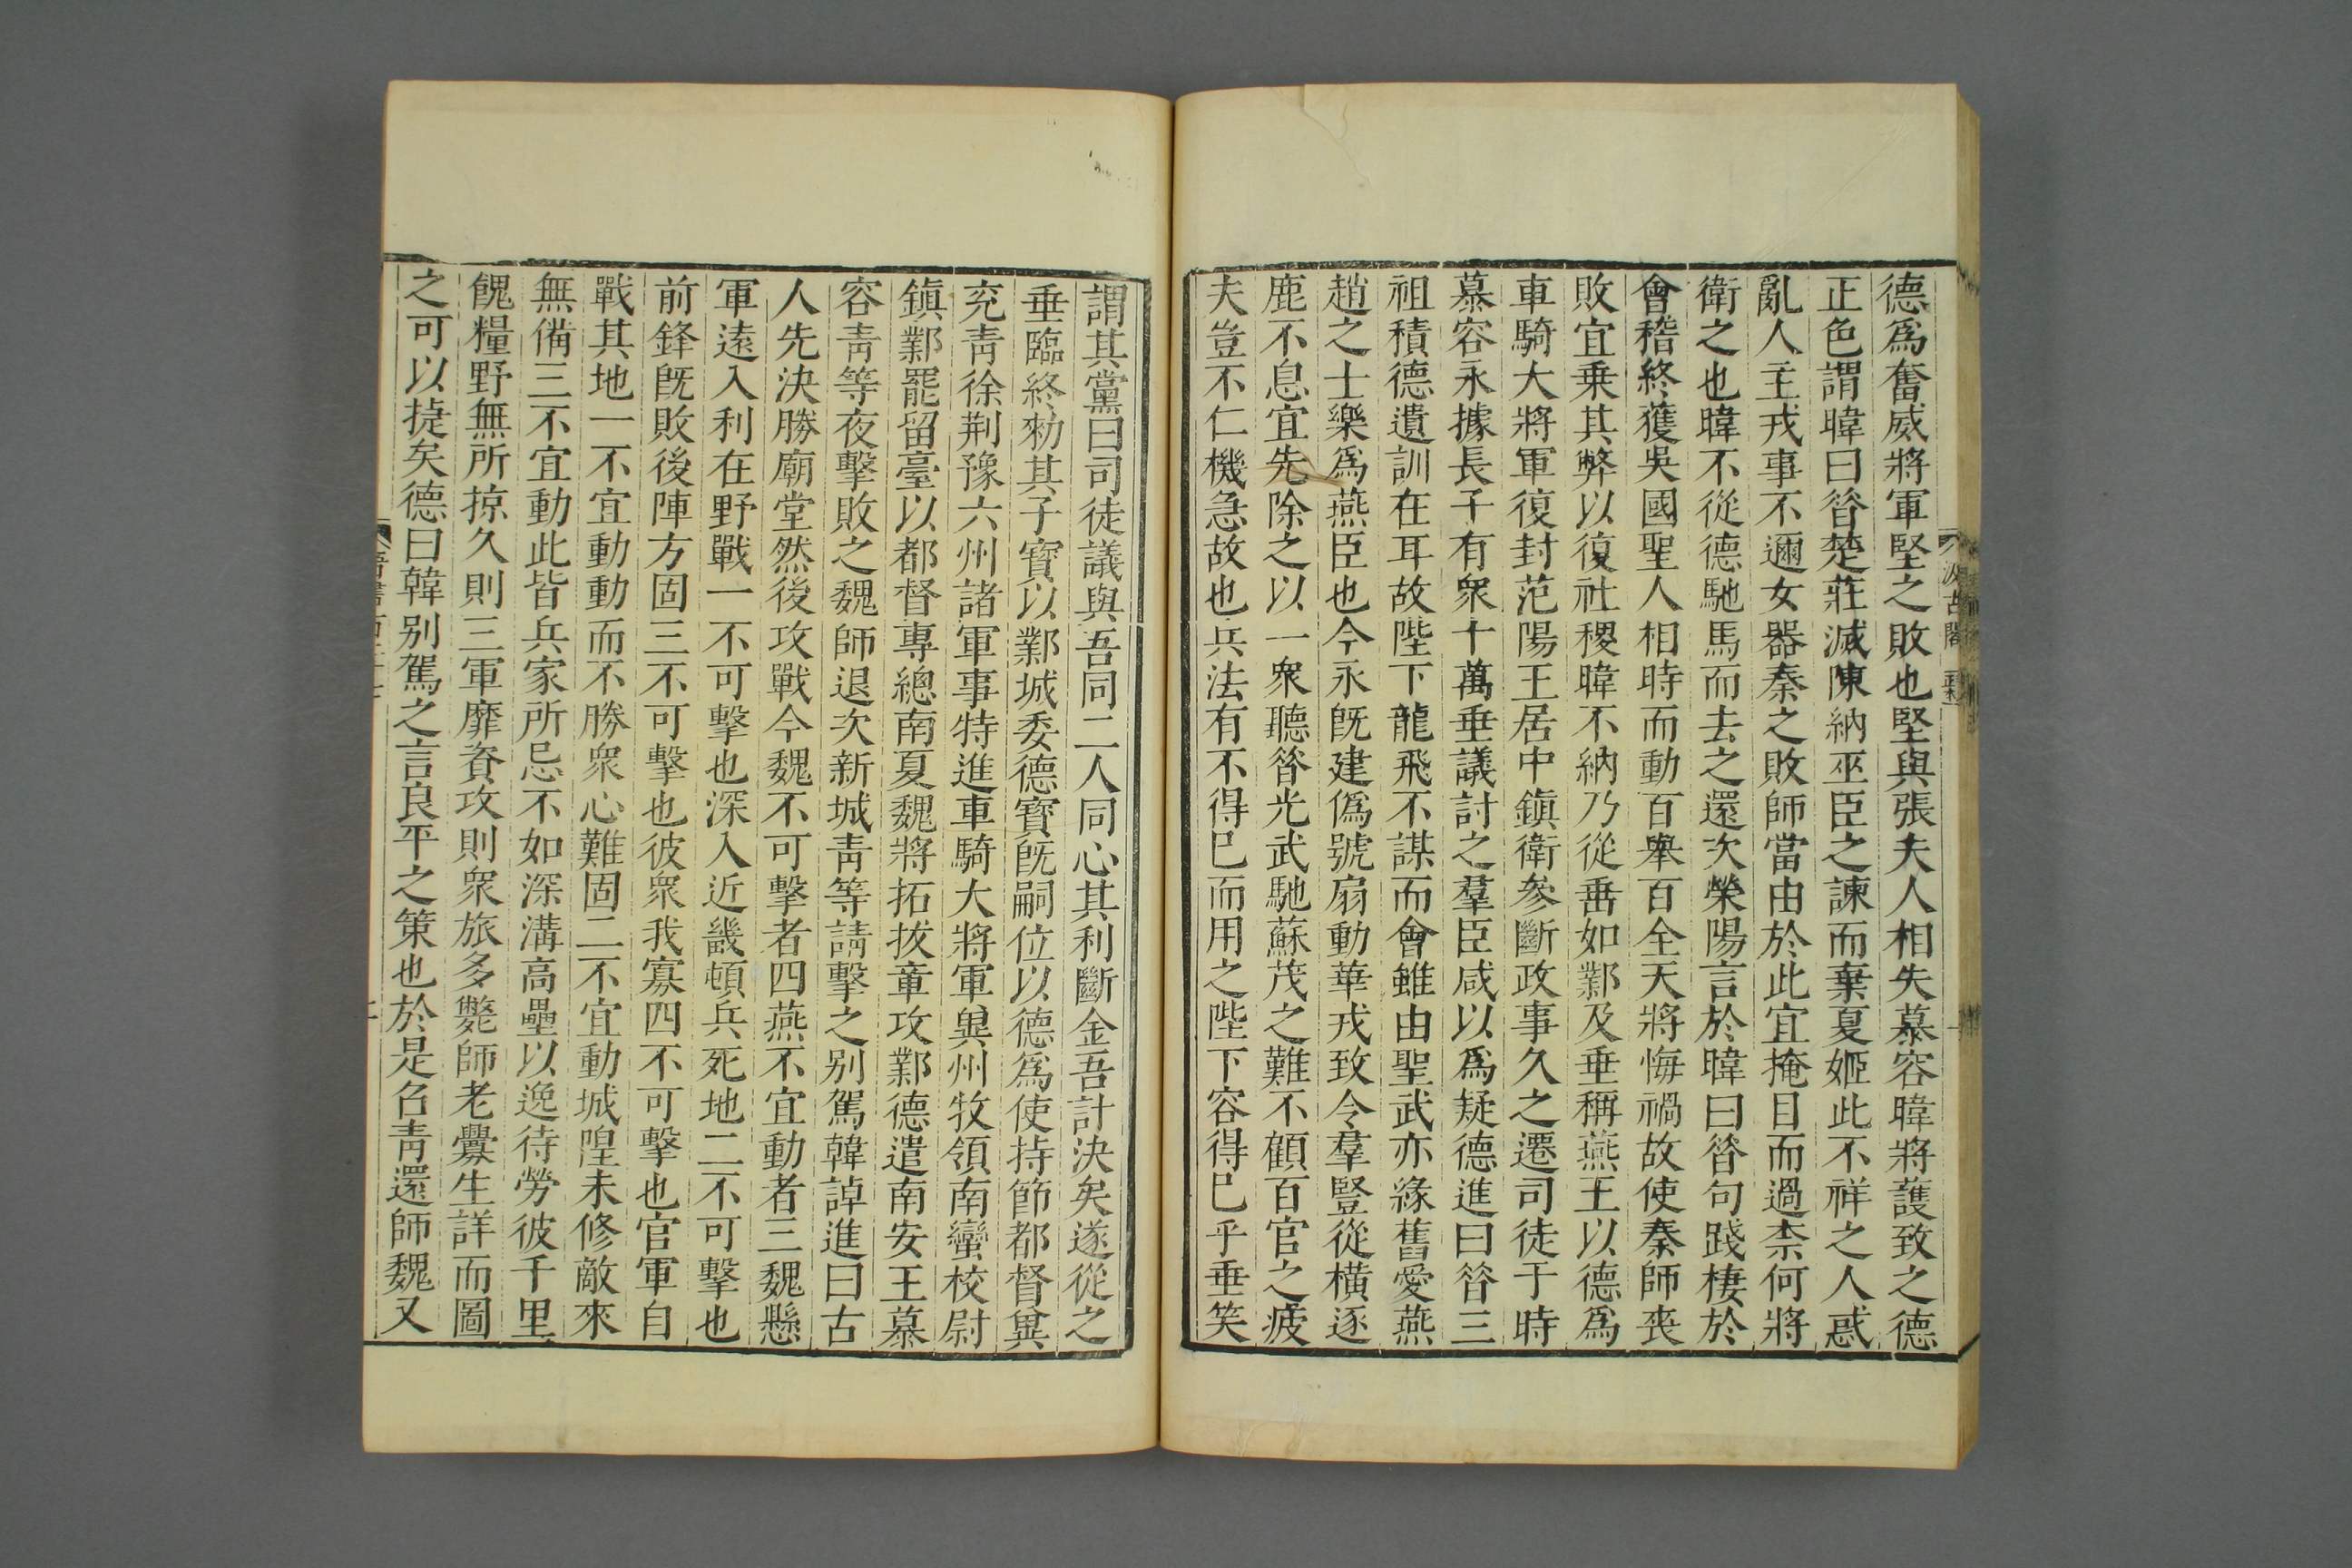 德爲奮威將軍堅之敗也堅與張夫人相失慕容暐將護致之德
正色謂暐曰昝楚莊滅陳納巫臣之諫而棄夏姬此不祥之人惑
亂人主戎事不邇女器秦之敗師當由於此宜掩目而過柰何將
衛之也暐不從德馳馬而去之還次滎陽言於暐曰昝句踐棲於
會稽終獲吳國聖人相時而動百舉百全天將悔禍故使秦師喪
敗宜乗其弊以復社稷暐不納乃從垂如鄴及垂稱燕王以德爲
車騎大將軍復封范陽王居中鎮衛參斷政事久之遷司徒于時
慕容永據長子有衆十萬垂議討之羣臣咸以爲疑德進曰昝三
祖積德遺訓在耳故陛下龍飛不謀而會雖由聖武亦緣舊愛燕
趙之士樂爲燕臣也今永旣建僞號扇動華戎致令羣豎從橫逐
鹿不息宜先除之以一衆聽昝光武馳蘇茂之難不顧百官之疲
夫豈不仁機急故也兵法有不得已而用之陛下容得已乎垂笑
謂其黨曰司徒議與吾同二人同心其利斷金吾計決矣遂從之
垂臨終勑其子寶以鄴城委德寶旣嗣位以德爲使持節都督兾
兖青徐荆豫六州諸軍事特進車騎大將軍兾州牧領南蠻校尉
鎮鄴罷留臺以都督專總南夏魏將拓拔章攻鄴德遣南安王慕
容青等夜擊敗之魏師退次新城青等請擊之别駕韓𧨳進曰古
人先決勝廟堂然後攻戰今魏不可擊者四燕不宜動者三魏懸
軍遠入利在野戰一不可擊也深入近畿頓兵死地二不可擊也
前鋒旣敗後陣方固三不可擊也彼衆我寡四不可擊也官軍自
戰其地一不宜動動而不勝衆心難固二不宜動城隍未修敵來
無備三不宜動此皆兵家所忌不如深溝高壘以逸待勞彼千里
餽糧野無所掠久則三軍靡資攻則衆旅多斃師老釁生詳而圖
之可以㨗矣德曰韓别駕之言良平之策也於是召青還師魏又
汲古閣